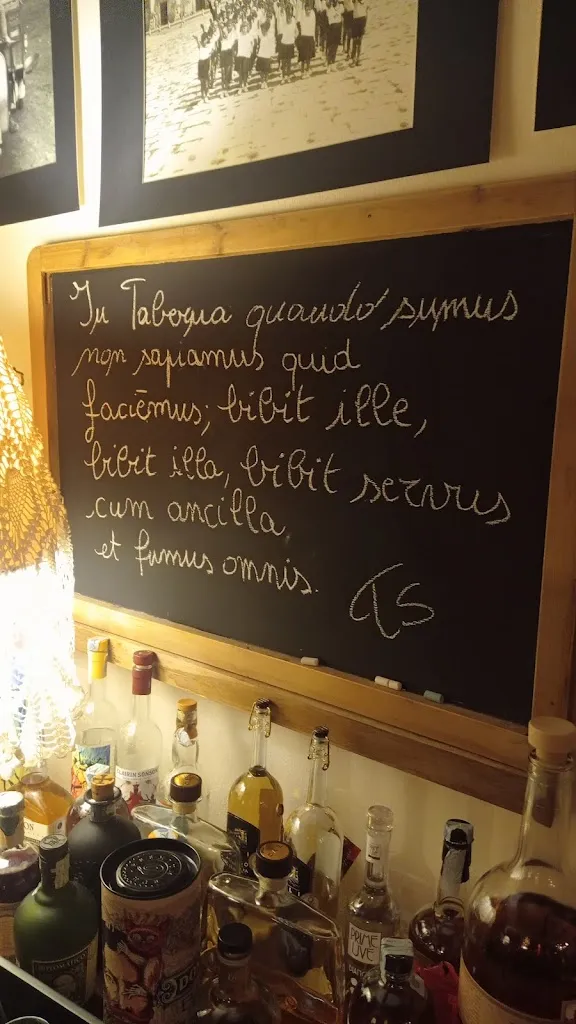 In Taboqua quando sumus
non sapiamus quid
faciēmus; bibit ille,
bibit illa, bibit servus
cum ancilla
et fumus omnis.
TS
PRIME
UVE